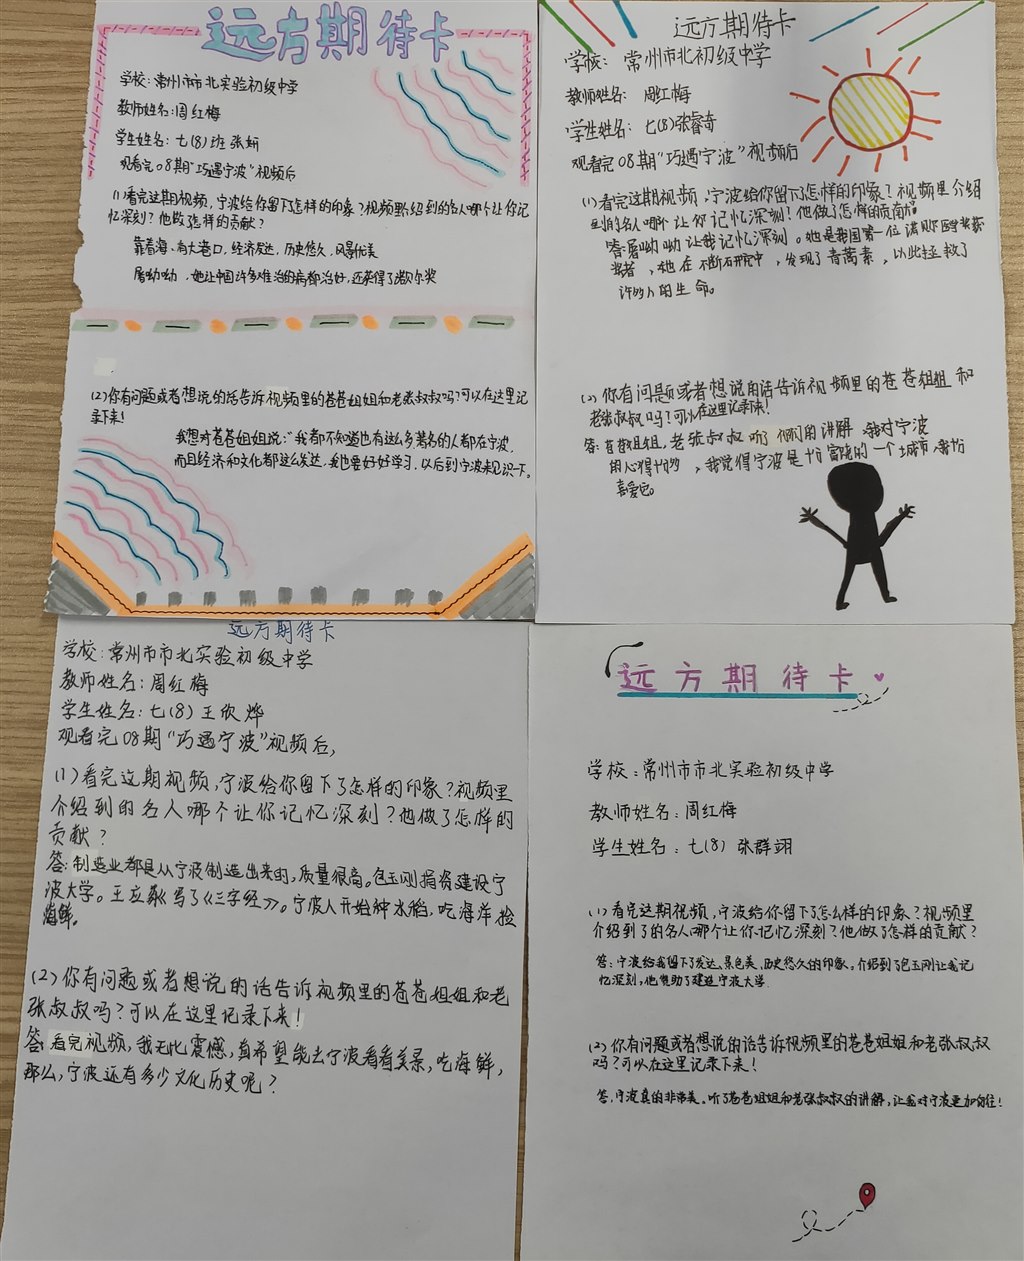 远方期待卡
学校：常州市市北实验初级中学
教师姓名：周红梅
学生姓名：七(8)班 张妍
观看完08期“巧遇宁波”视频后
(1)看完这期视频，宁波给你留下怎样的印象？视频里介绍到的名人哪个让你记
忆深刻？他做了怎样的贡献？
靠着海，有大港口，经济发达，历史悠久，风景优美
屠呦呦，她让中国许多难治的病都治好，还获得了诺尔奖
(2)你有问题或者想说的话告诉视频里的苍苍姐姐和老张叔叔吗？可以在这里记
录下来！
我想对苍苍姐姐说：“我都不知道也有这么多著名的人都在宁波，
而且经济和文化都这么发达，我也要好好学习，以后到宁波来见识一下。
远方期待卡
学校： 常州市北初级中学
教师姓名： 周红梅
学生姓名： 七(8)张睿奇
观看完08期“巧遇宁波”视频后
(1)看完这期视频，宁波给你留下了怎样的印象？视频里介绍
到的名人哪个让你记忆深刻！他做了怎样的贡献？
答：屠呦呦让我记忆深刻。她是我国第一位诺贝尔医学奖获
奖者，她在不断研究中，发现了青蒿素，以此拯救了
许多人的生命。
(2)你有问题或者想说的话告诉视频里的苍苍姐姐和
老张叔叔吗？可以在这里记录下来！
答：苍苍姐姐，老张叔叔听了你们的讲解，我对宁波
的心得十分多，我觉得宁波是十分富饶的一个城市，我十分
喜爱它。
远方期待卡
学校：常州市市北实验初级中学
教师姓名：周红梅
学生姓名：七(8) 王欣烨
观看完08期“巧遇宁波”视频后，
(1)看完这期视频，宁波给你留下了怎样的印象？视频里
介绍到的名人哪个让你记忆深刻？他做了怎样的
贡献？
答：制造业都是从宁波制造出来的，质量很高。包玉刚捐资建设宁
波大学。王应麟写了《三字经》。宁波人开始种水稻，吃海洋捡
海鲜。
(2)你有问题或者想说的话告诉视频里的苍苍姐姐和老
张叔叔吗？可以在这里记录下来！
答：看完视频，我无比震憾，真希望能去宁波看看美景，吃海鲜，
那么，宁波还有多少文化历史呢？
远方期待卡
学校：常州市市北实验初级中学
教师姓名：周红梅
学生姓名：七(8) 张群翊
(1)看完这期视频，宁波给你留下了怎么样的印象？视频里
介绍到了的名人哪个让你记忆深刻？他做了怎样的贡献？
答：宁波给我留下了发达、景色美、历史悠久的印象。介绍到了包玉刚让我记
忆深刻，他赞助了建造宁波大学
(2)你有问题或者想说的话告诉视频里的苍苍姐姐和老张叔叔
吗？可以在这里记录下来！
答，宁波真的非常美。听了苍苍姐姐和老张叔叔的讲解，让我对宁波更加向往！